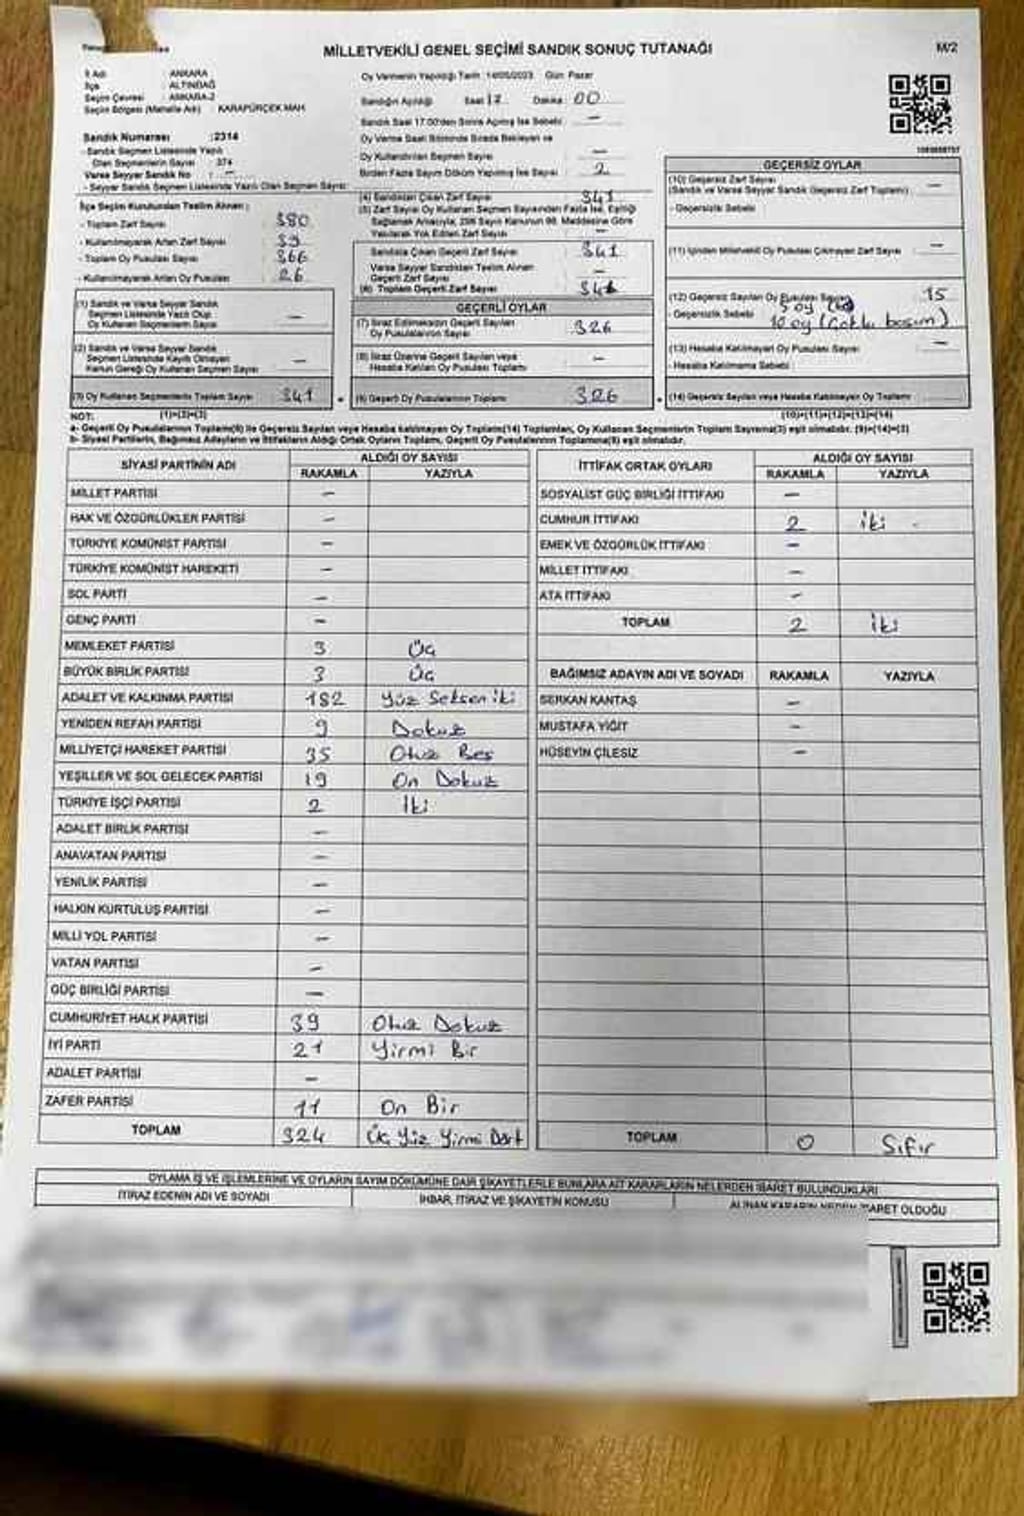 MİLLETVEKİLİ GENEL SEÇİMİ SANDIK SONUÇ TUTANAĞI
M/2
İl Adı : ANKARA
İlçe : ALTINDAĞ
Seçim Çevresi : ANKARA-2
Seçim Bölgesi (Mahalle Adı) : KARAPÜRÇEK MAH.
Sandık Numarası : 2314
- Sandık Seçmen Listesinde Yazılı
Olan Seçmenlerin Sayısı : 374
Varsa Seyyar Sandık No : -
- Seyyar Sandık Seçmen Listesinde Yazılı Olan Seçmen Sayısı:
İlçe Seçim Kurulundan Teslim Alınan :
- Toplam Zarf Sayısı 380
- Kullanılmayarak Artan Zarf Sayısı 39
- Toplam Oy Pusulası Sayısı 366
- Kullanılmayarak Artan Oy Pusulası 26
(1) Sandık ve Varsa Seyyar Sandık
Seçmen Listesinde Yazılı Olup
Oy Kullanan Seçmenlerin Sayısı -
(2) Sandık ve Varsa Seyyar Sandık
Seçmen Listesinde Kayıtlı Olmayan
Kanun Gereği Oy Kullanan Seçmen Sayısı -
(3) Oy Kullanan Seçmenlerin Toplam Sayısı 341
Oy Vermenin Yapıldığı Tarih : 14/05/2023 Gün: Pazar
Sandığın Açıldığı Saat 17 Dakika 00
Sandık Saat 17.00'den Sonra Açılmış İse Sebebi: -
Oy Verme Saati Bitiminde Sırada Bekleyen ve
Oy Kullandırılan Seçmen Sayısı -
Birden Fazla Sayım Döküm Yapılmış İse Sayısı 2
(4) Sandıktan Çıkan Zarf Sayısı 341
(5) Zarf Sayısı Oy Kullanan Seçmen Sayısından Fazla İse, Eşitliği
Sağlamak Amacıyla, 298 Sayılı Kanunun 98. Maddesine Göre
Yakılarak Yok Edilen Zarf Sayısı -
Sandıkta Çıkan Geçerli Zarf Sayısı 341
Varsa Seyyar Sandıktan Teslim Alınan
Geçerli Zarf Sayısı -
(6) Toplam Geçerli Zarf Sayısı 341
GEÇERLİ OYLAR
(7) İtiraz Edilmeksizin Geçerli Sayılan
Oy Pusulalarının Sayısı 326
(8) İtiraz Üzerine Geçerli Sayılan veya
Hesaba Katılan Oy Pusulası Toplamı -
(9) Geçerli Oy Pusulalarının Toplamı 326
GEÇERSİZ OYLAR
(10) Geçersiz Zarf Sayısı
(Sandık ve Varsa Seyyar Sandık Geçersiz Zarf Toplamı) -
- Geçersizlik Sebebi
(11) İçinden Milletvekili Oy Pusulası Çıkmayan Zarf Sayısı -
(12) Geçersiz Sayılan Oy Pusulası Sayısı 15
5 oy
- Geçersizlik Sebebi 10 oy (Çoklu basım)
(13) Hesaba Katılmayan Oy Pusulası Sayısı -
- Hesaba Katılmama Sebebi :
(14) Geçersiz Sayılan veya Hesaba Katılmayan Oy Toplamı
NOT: (1)+(2)=(3) (10)+(11)+(12)+(13)=(14)
a- Geçerli Oy Pusulalarının Toplamı(9) ile Geçersiz Sayılan veya Hesaba katılmayan Oy Toplamı(14) Toplamları, Oy Kullanan Seçmenlerin Toplam Sayısına(3) eşit olmalıdır. (9)+(14)=(3)
b- Siyasi Partilerin, Bağımsız Adayların ve İttifakların Aldığı Ortak Oyların Toplamı, Geçerli Oy Pusulalarının Toplamına(9) eşit olmalıdır.
SİYASİ PARTİNİN ADI ALDIĞI OY SAYISI
RAKAMLA YAZIYLA
MİLLET PARTİSİ -
HAK VE ÖZGÜRLÜKLER PARTİSİ -
TÜRKİYE KOMÜNİST PARTİSİ -
TÜRKİYE KOMÜNİST HAREKETİ -
SOL PARTİ -
GENÇ PARTİ -
MEMLEKET PARTİSİ 3 Üç
BÜYÜK BİRLİK PARTİSİ 3 Üç
ADALET VE KALKINMA PARTİSİ 182 Yüz Seksen iki
YENİDEN REFAH PARTİSİ 9 Dokuz
MİLLİYETÇİ HAREKET PARTİSİ 35 Otuz Beş
YEŞİLLER VE SOL GELECEK PARTİSİ 19 On Dokuz
TÜRKİYE İŞÇİ PARTİSİ 2 İki
ADALET BİRLİK PARTİSİ -
ANAVATAN PARTİSİ -
YENİLİK PARTİSİ -
HALKIN KURTULUŞ PARTİSİ -
MİLLİ YOL PARTİSİ -
VATAN PARTİSİ -
GÜÇ BİRLİĞİ PARTİSİ -
CUMHURİYET HALK PARTİSİ 39 Otuz Dokuz
İYİ PARTİ 21 Yirmi Bir
ADALET PARTİSİ -
ZAFER PARTİSİ 11 On Bir
TOPLAM 324 Üç Yüz Yirmi Dört
İTTİFAK ORTAK OYLARI ALDIĞI OY SAYISI
RAKAMLA YAZIYLA
SOSYALİST GÜÇ BİRLİĞİ İTTİFAKI -
CUMHUR İTTİFAKI 2 iki
EMEK VE ÖZGÜRLÜK İTTİFAKI -
MİLLET İTTİFAKI -
ATA İTTİFAKI -
TOPLAM 2 iki
BAĞIMSIZ ADAYIN ADI VE SOYADI RAKAMLA YAZIYLA
SERKAN KANTAŞ -
MUSTAFA YİĞİT -
HÜSEYİN ÇİLESİZ -
TOPLAM 0 Sıfır
OYLAMA İŞ VE İŞLEMLERİNE VE OYLARIN SAYIM DÖKÜMÜNE DAİR ŞİKAYETLERLE BUNLARA AİT KARARLARIN NELERDEN İBARET BULUNDUKLARI
İTİRAZ EDENİN ADI VE SOYADI İHBAR, İTİRAZ VE ŞİKAYETİN KONUSU ALINAN KARARIN NEDEN İBARET OLDUĞU